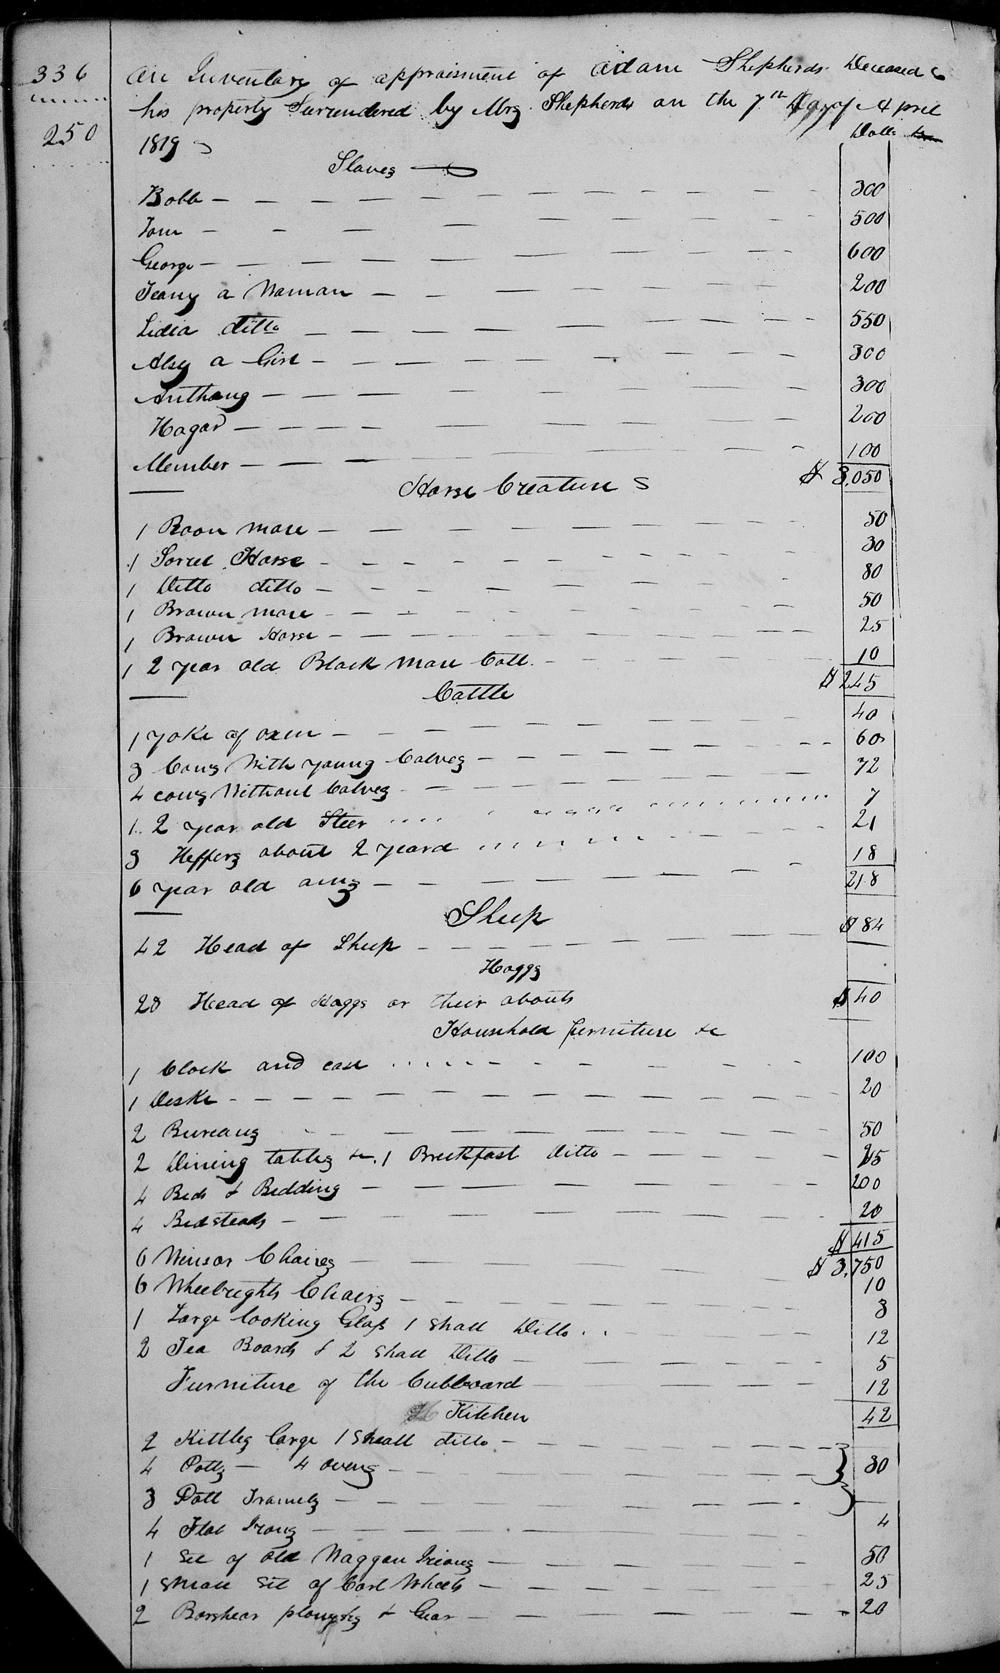 336
250
An Inventary of appraisment of Adam Shepherds Deceased &
his property Surrendered by Mrs Shepherds on the 7th Day of April
1819
Dolls
Slaves
Bobb 300
Tom 500
George 600
Jeany a Woman 200
Lidia ditto 550
Alsy a Girl 300
Anthony 300
Hagar 200
Member 100
$ 3,050
Horse Creatures
1 Roon mare 50
1 Sorrel Horse 30
1 Ditto ditto 80
1 Brown mare 50
1 Brown Horse 25
1 2 year old Black mare Colt 10
$ 245
Cattle
1 yoke of oxen 40
3 Cows With young Calves 60
4 cows Without Calves 72
1 2 year old Steer 7
3 Heffers about 2 yeard 21
6 year old 18
218
Sheep
42 Head of Sheep $ 84
Hoggs
20 Head of Hoggs or their abouts $ 40
Household furniture &c
1 Clock and case 100
1 Deske 20
2 Bureaus 50
2 Dining tables &c. 1 Breckfast Ditto 25
4 Beds & Bedding 200
4 Bedsteads 20
$ 415
6 Winsor Chaires $ 3,750
6 Wheelrights Chairs 10
1 Large looking Glass 1 Small Ditto 3
2 Tea Boards & 2 Small Ditto 12
5
Furniture of the Cubboard 12
Kitchen 42
2 Kittles large 1 Small ditto
4 Potts 4 ovens 30
3 Pott Tramels
4 Flat Irons 4
1 Set of old Waggon Irions 50
1 Small Set of Cart Wheels 25
2 Barshear ploughs & Gear 20